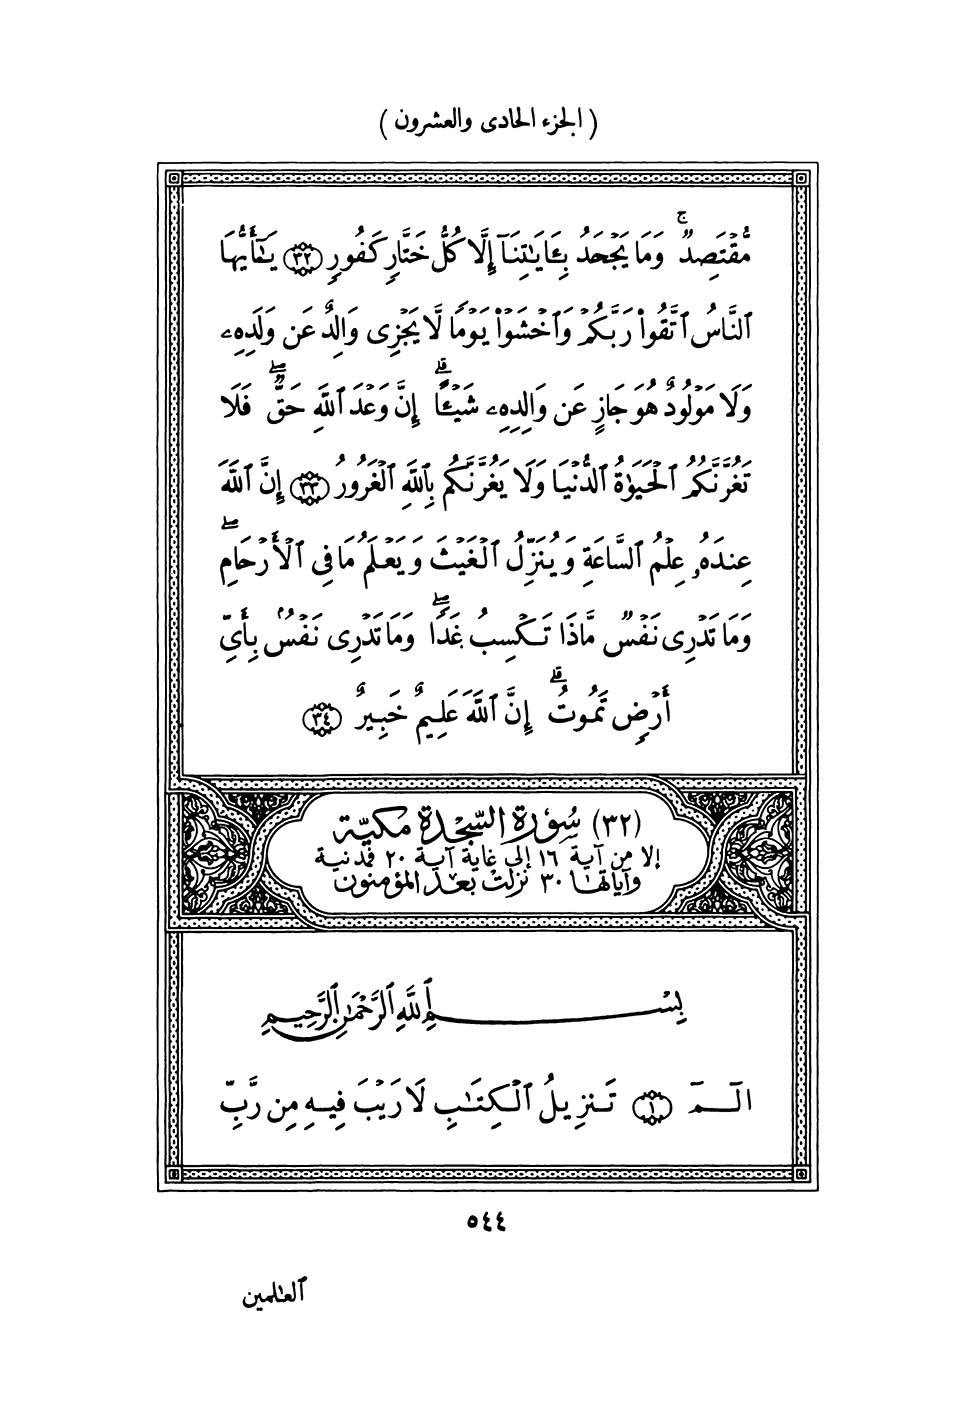 ( الجزء الحادى والعشرون )
مُّقْتَصِدٌ ۚ وَمَا يَجْحَدُ بِـَٔايَـٰتِنَآ إِلَّا كُلُّ خَتَّارٍ كَفُورٍ ﴿٣٢﴾ يَـٰٓأَيُّهَا
ٱلنَّاسُ ٱتَّقُوا۟ رَبَّكُمْ وَٱخْشَوْا۟ يَوْمًا لَّا يَجْزِى وَالِدٌ عَن وَلَدِهِۦ
وَلَا مَوْلُودٌ هُوَ جَازٍ عَن وَالِدِهِۦ شَيْـًٔا ۚ إِنَّ وَعْدَ ٱللَّهِ حَقٌّ ۖ فَلَا
تَغُرَّنَّكُمُ ٱلْحَيَوٰةُ ٱلدُّنْيَا وَلَا يَغُرَّنَّكُم بِٱللَّهِ ٱلْغَرُورُ ﴿٣٣﴾ إِنَّ ٱللَّهَ
عِندَهُۥ عِلْمُ ٱلسَّاعَةِ وَيُنَزِّلُ ٱلْغَيْثَ وَيَعْلَمُ مَا فِى ٱلْأَرْحَامِ ۖ
وَمَا تَدْرِى نَفْسٌ مَّاذَا تَكْسِبُ غَدًا ۖ وَمَا تَدْرِى نَفْسٌۢ بِأَىِّ
أَرْضٍ تَمُوتُ ۚ إِنَّ ٱللَّهَ عَلِيمٌ خَبِيرٌ ﴿٣٤﴾
(٣٢) سُورَةِ السَّجْدَة مكيّة
إلا من آية ١٦ إلى غاية آية ٢٠ فمدنية
وآياتها ٣٠ نزلت بعد المؤمنون
بِسْمِ ٱللَّهِ ٱلرَّحْمَـٰنِ ٱلرَّحِيمِ
الٓـمٓ ﴿١﴾ تَنزِيلُ ٱلْكِتَـٰبِ لَا رَيْبَ فِيهِ مِن رَّبِّ
٥٤٤
ٱلعـٰلمين